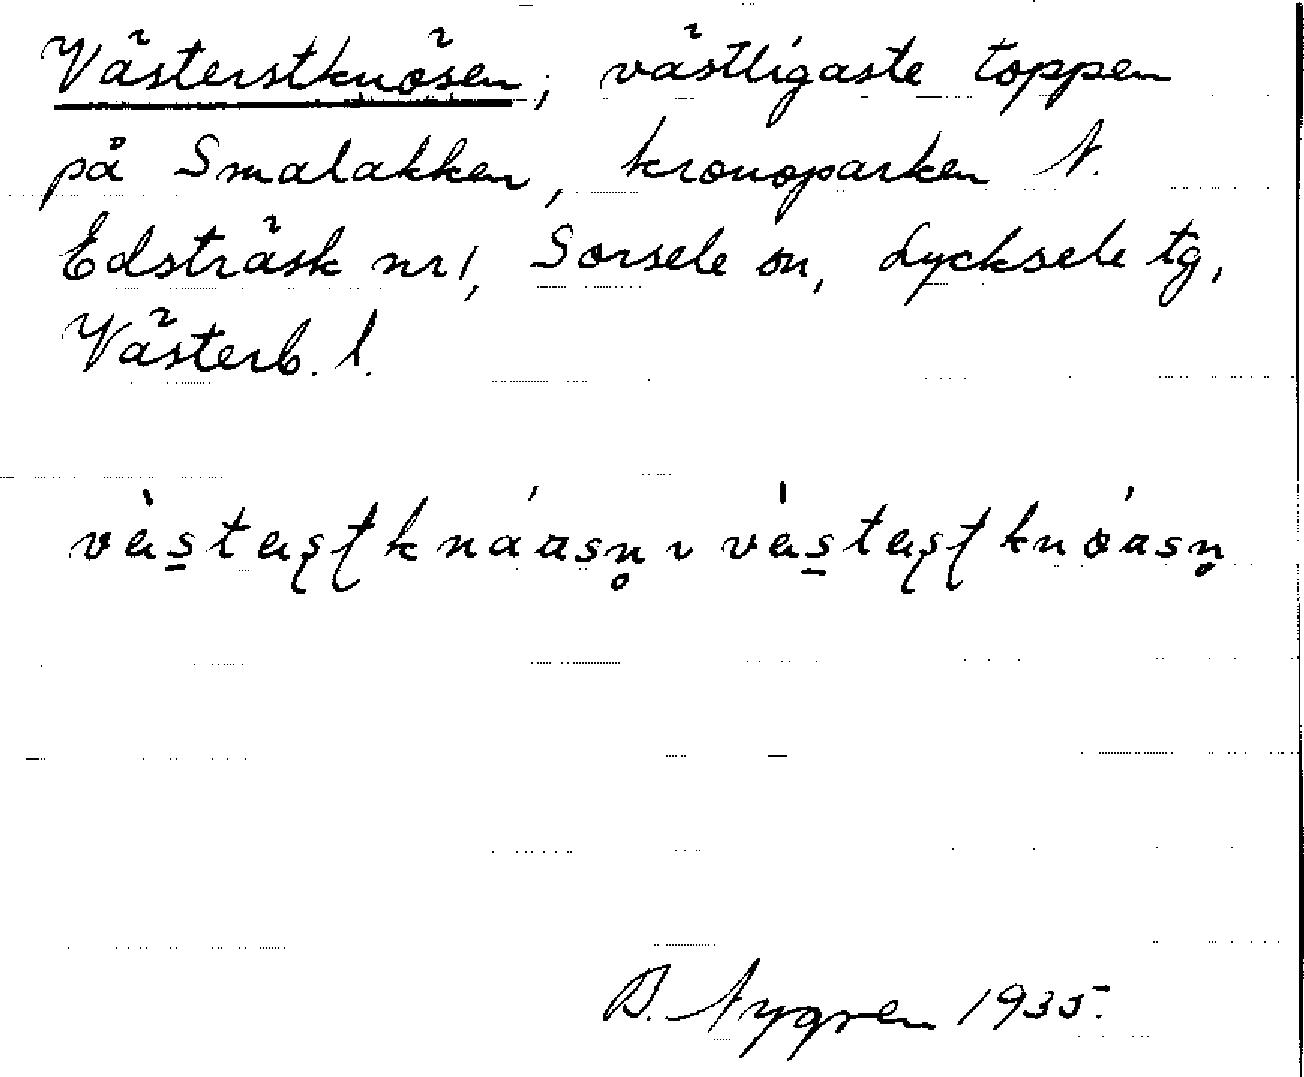 Västerstknösen, västligaste toppen
på Smalakken, kronoparken N.
Edsträsk nr 1, Sorsele sn, Lycksele tg,
Västerb. l.
B. Nygren 1935.